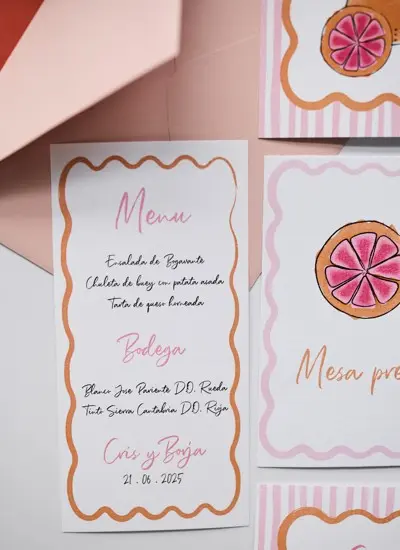 Menu
Ensalada de Bogavante
Chuleta de buey con patata asada
Tarta de queso horneada
Bodega
Blanco Jose Pariente D.O. Rueda
Tinto Sierra Cantabria D.O. Rioja
Cris y Borja
21 . 06 . 2025
Mesa pre